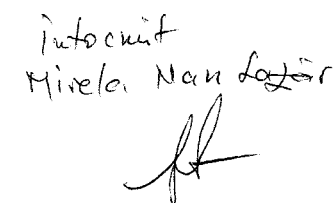 Intocmit
Mirela Nan Lazăr